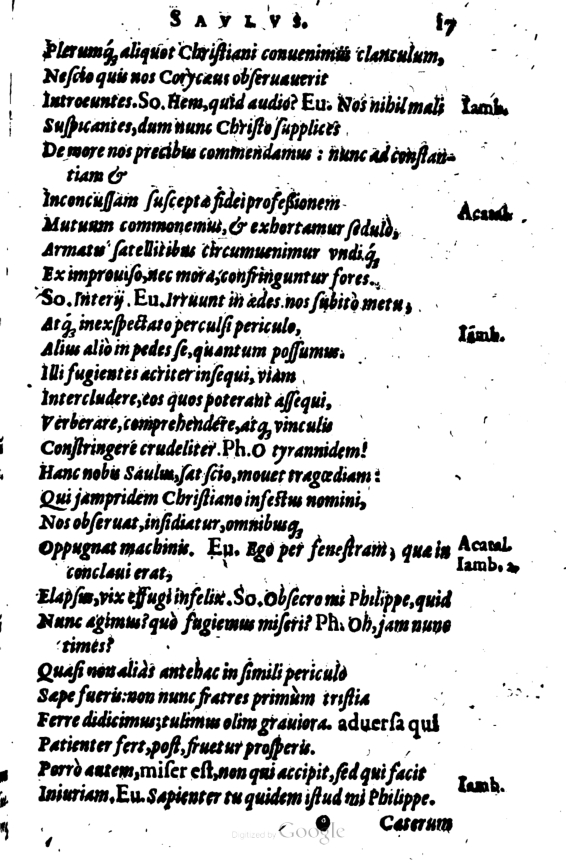 SAVLVS. 17
Plerumq́, aliquot Christiani conuenimus clanculum,
Nescio quis nos Corycæus obseruauerit
Introeuntes. So. Hem, quid audio? Eu. Nos nihil mali Iamb.
Suspicantes, dum nunc Christo supplices
De more nos precibus commendamus : nunc ad constan-
tiam &
Inconcussam susceptæ fidei professionem Acatal.
Mutuum commonemus, & exhortamur sedulò,
Armatis satellitibus circumuenimur vndiq́,
Ex improuiso, nec mora, confringuntur fores.
So. Interij. Eu. Irruunt in ædes. nos subitò metu,
Atq́, inexspectato perculsi periculo, Iamb.
Alius aliò in pedes se, quantum possumus.
Illi fugientes acriter insequi, viam
Intercludere, eos quos poterant assequi,
Verberare, comprehendere, atq́, vinculis
Constringere crudeliter. Ph. O tyrannidem!
Hanc nobis Saulus, sat scio, mouet tragœdiam :
Qui jampridem Christiano infestus nomini,
Nos obseruat, insidiatur, omnibusq́,
Oppugnat machinis. Eu. Ego per fenestram, quæ in Acatal.
conclaui erat, Iamb. 2.
Elapsus, vix effugi infelix. So. Obsecro mi Philippe, quid
Nunc agimus? quò fugiemus miseri? Ph. Oh, jam nunc
times?
Quasi non aliàs antehac in simili periculo
Sæpe fueris: non nunc fratres primùm tristia
Ferre didicimus; tulimus olim grauiora. aduersa qui
Patienter fert, pòst, fruetur prosperis.
Porrò autem, miser est, non qui accipit, sed qui facit Iamb.
Iniuriam. Eu. Sapienter tu quidem istud mi Philippe.
Cæterum
Digitized by Google